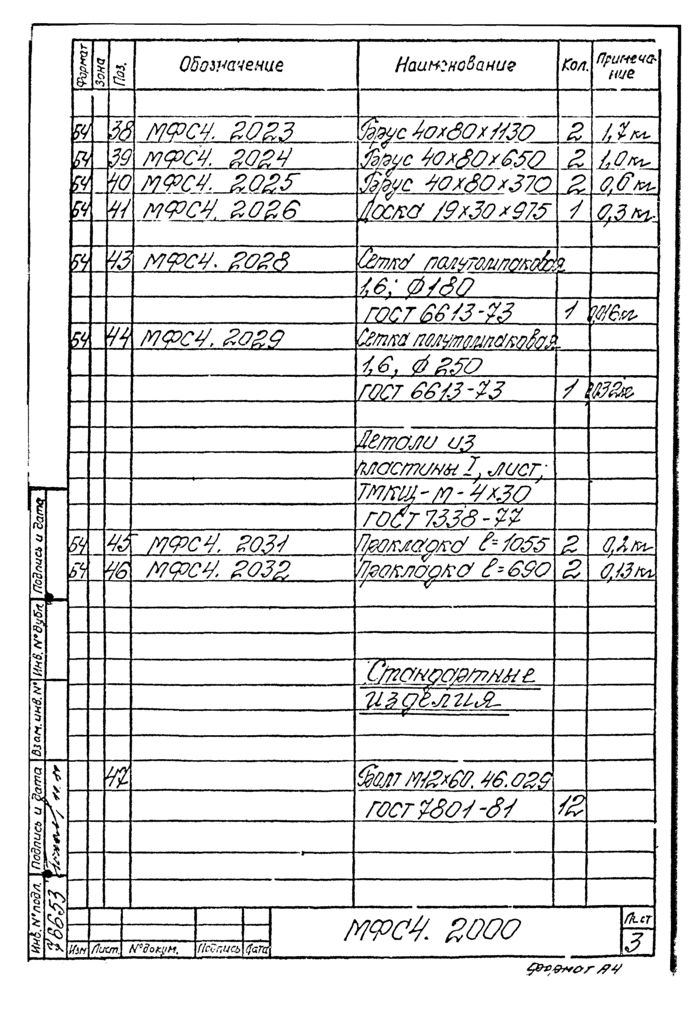 Формат Зона Поз. Обозначение Наименование Кол. Примеча-
ние
БЧ 38 МФС4. 2023 Брус 40×80×1130 2 1,7кг
БЧ 39 МФС4. 2024 Брус 40×80×650 2 1,0кг
БЧ 40 МФС4. 2025 Брус 40×80×370 2 0,6кг
БЧ 41 МФС4. 2026 Доска 19×30×975 1 0,3кг
БЧ 43 МФС4. 2028 Сетка полутомпаковая
1,6; ф180
ГОСТ 6613-73 1 0,016кг
БЧ 44 МФС4. 2029 Сетка полутомпаковая
1,6, ф250
ГОСТ 6613-73 1 0,032кг
Детали из
пластины I, лист,
ТМКЩ-М-4×30
ГОСТ 7338-77
БЧ 45 МФС4. 2031 Прокладка ℓ=1055 2 0,2кг
БЧ 46 МФС4. 2032 Прокладка ℓ=690 2 0,13кг
Стандартные
изделия
47 Болт М12×60.46.029
ГОСТ 7801-81 12
Подпись и дата
Инв. № дубл.
Взам. инв. №
Подпись и дата
Инв. № подл.
Изм Лист. № докум. Подпись Дата
МФС4. 2000
Лист
3
Формат А4